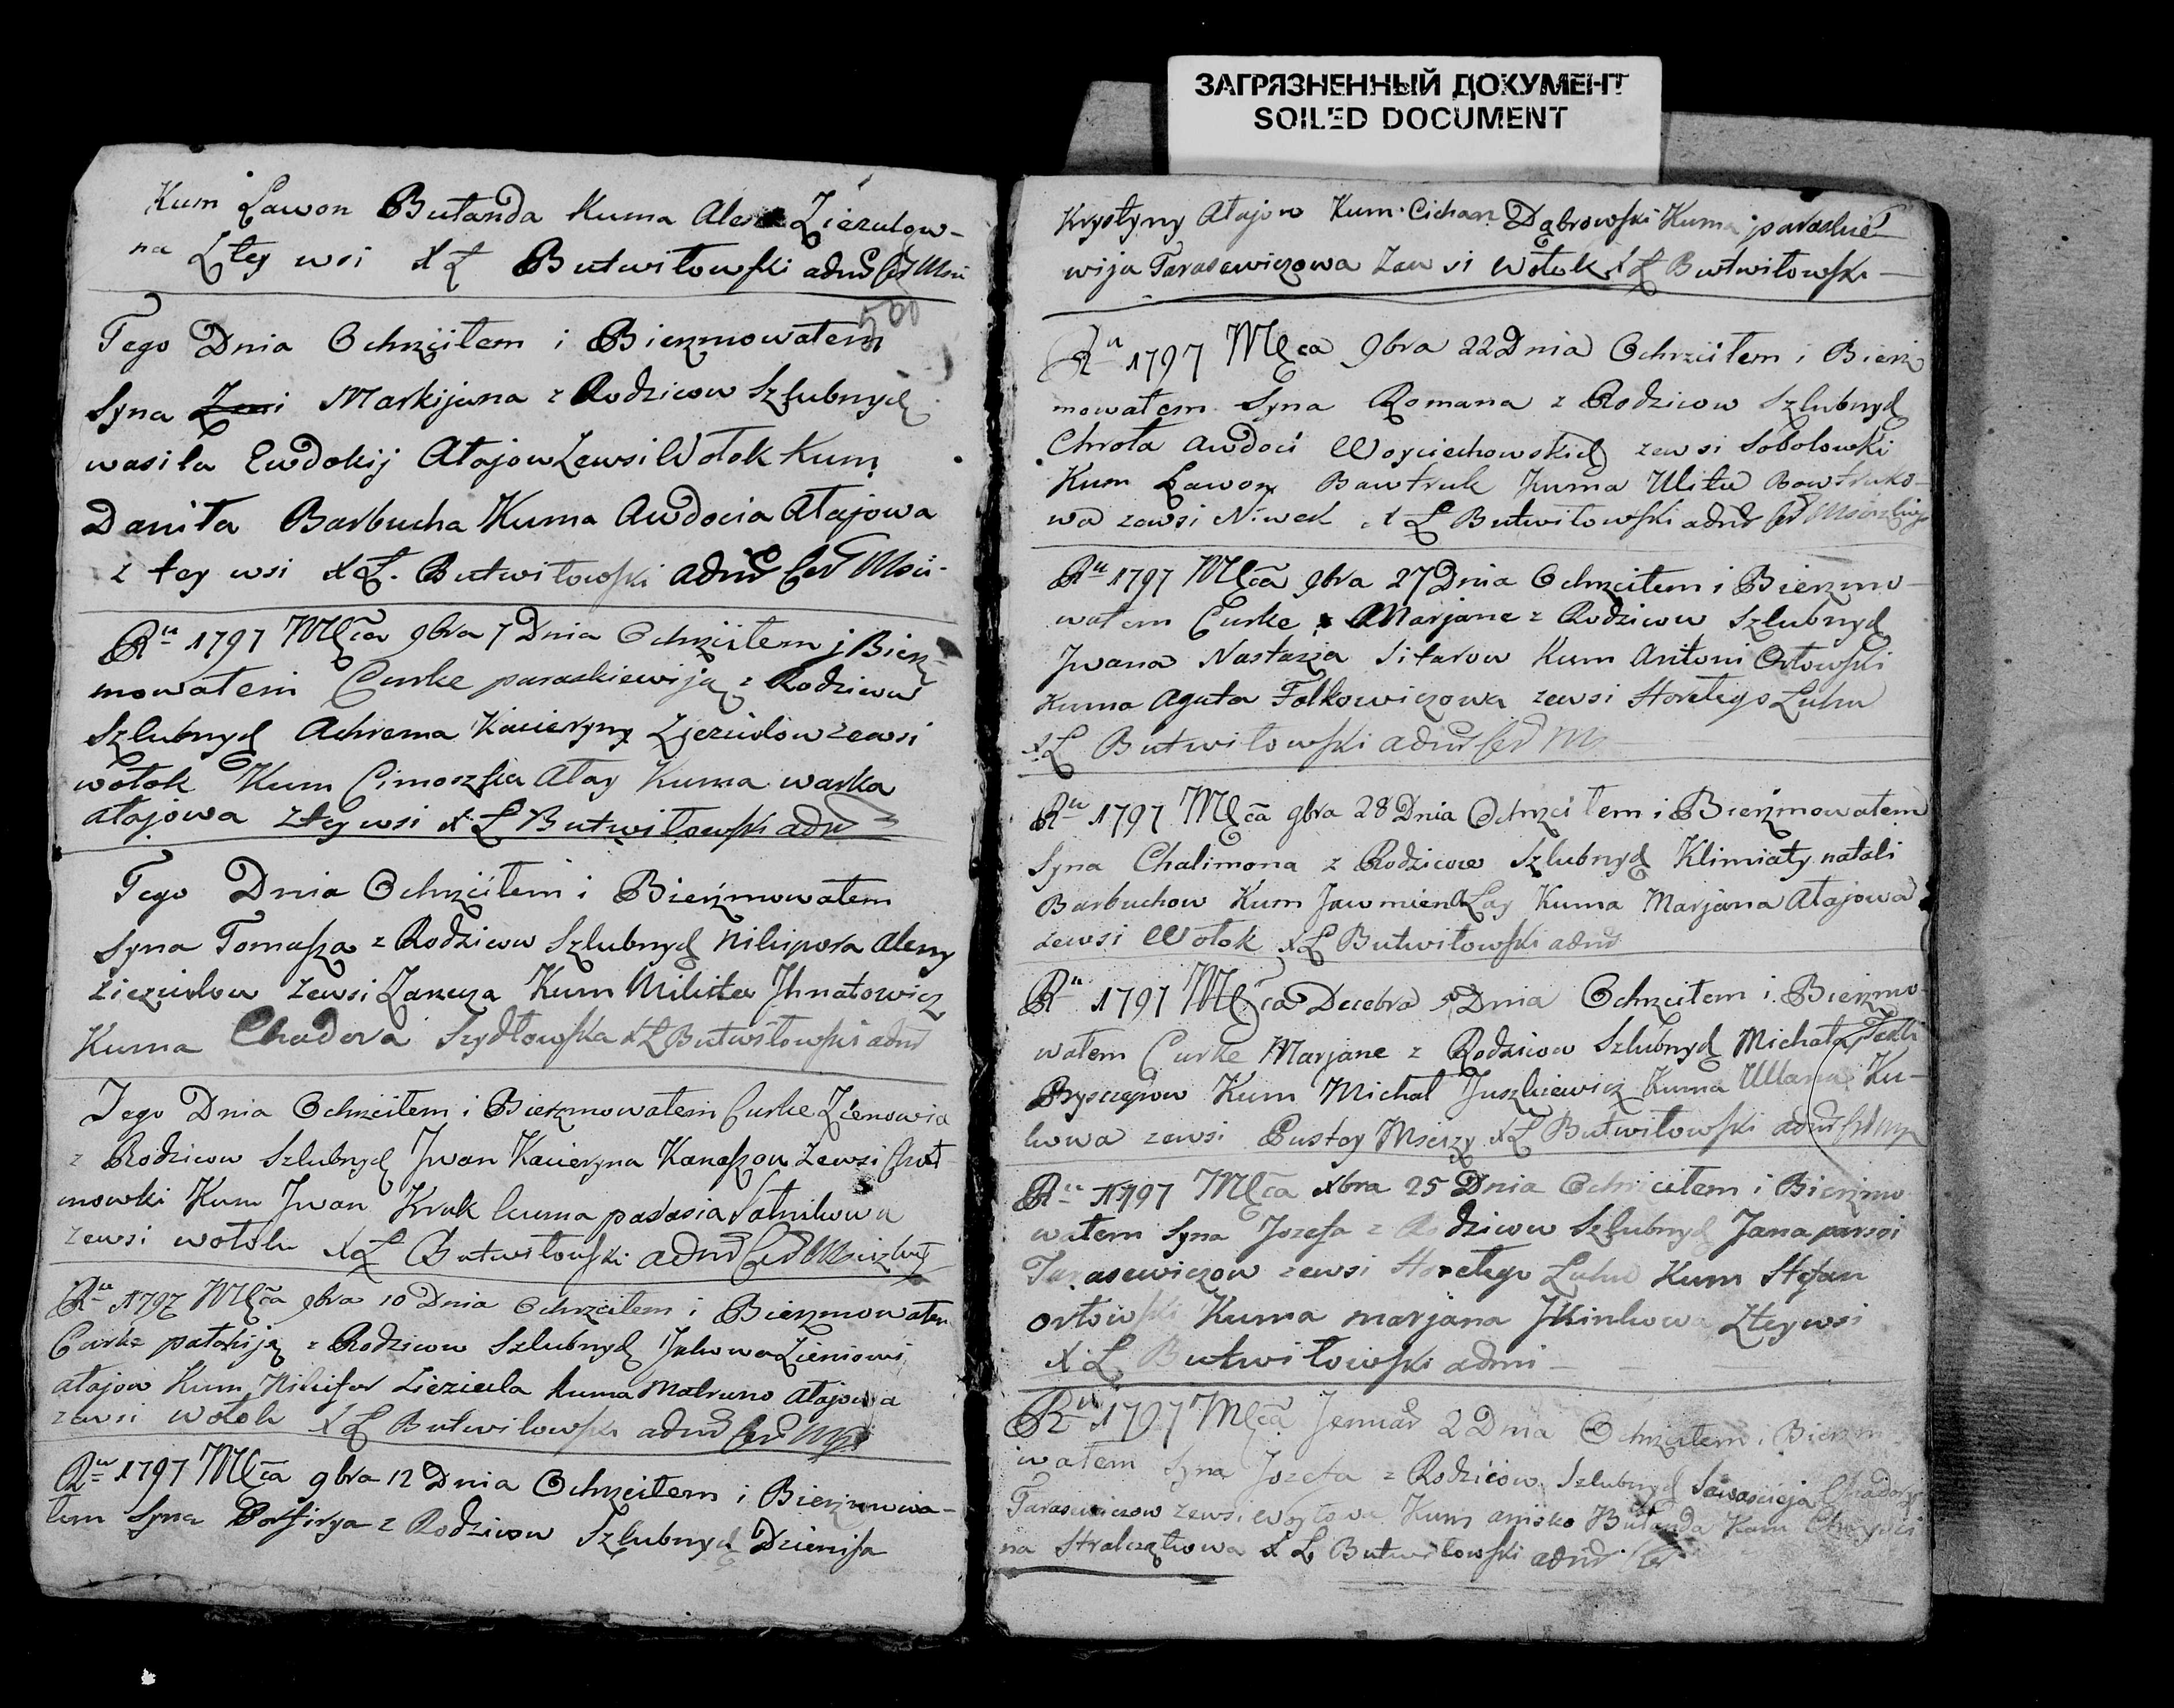 ЗАГРЯЗНЕННЫЙ ДОКУМЕНТ
SOILED DOCUMENT
Kum Ławon Butanda Kuma Zierulow-
na Ztey wsi X Ł Butwiłowski admr
500
Tego Dnia Ochrzciłem i Bierzmowałem
Syna Markijana z Rodzicow Szlubnych
wasila Ewdokij Ałajow Zewsi Wołok Kum
Daniła Barbucha Kuma Awdocia Ałajowa
z tey wsi X Ł. Butwiłowski admr
Ru 1797 Mca 9bra 7 Dnia Ochrzciłem j Bierz-
mowałem Curke paraskiewiją z Rodzicow
Szlubnych Achrema Kacieryny Zjezulow zewsi
wołok Kum Cimoszka Ałay Kuma warka
ałajowa z tey wsi X Ł Butwiłowski admr
Tego Dnia Ochrzciłem i Bierzmowałem
Syna Tomasza z Rodzicow Szlubnych Nikipora Aleny
Ziezulow Zewsi Kum Mikita Jhnatowicz
Kuma Chadora Szydłowska X Ł Butwiłowski admr
Tego Dnia Ochrzciłem i Bierzmowałem Curke Zienowia
z Rodzicow Szlubnych Jwan Kacieryna Kanaszow Zewsi
mowki Kum Jwan Kruk kuma parasia
zewsi wołok X Ł Butwiłowski admr
Ru 1797 Mca 9bra 10 Dnia Ochrzciłem i Bierzmowałem
Curke z Rodzicow Szlubnych Jakowa Zieniowi
ałajow Kum Nikifor Zieziula kuma Matruno Ałajowa
zewsi wołok X Ł Butwiłowski admr
Ru 1797 Mca 9bra 12 Dnia Ochrzciłem i Bierzmowa-
łem Syna Porfirya z Rodzicow Szlubnych Dzienisa
Krystyny Ałajow Kum Cichan Dąbrowski Kuma paraskie-
wija Tarasewiczowa Zewsi Wołok X Ł Butwiłowski
Ru 1797 Mca 9bra 22 Dnia Ochrzciłem i Bierz
mowałem Syna Romana z Rodzicow Szlubnych
Chroła Awdoci Woyciechowskich zewsi Sobolowki
Kum Ławon Bawtruk Kuma Ulita Bawtruko-
wa zewsi Niwek X Ł Butwiłowski admr
Ru 1797 Mca 9bra 27 Dnia Ochrzciłem i Bierzmo-
wałem Curke Marjane z Rodzicow Szlubnych
Jwana Nastazja Sitarow Kum Antoni Orłowski
Kuma Agata Falkowiczowa zewsi Horełego Luhu
X Ł Butwiłowski admr
Ru 1797 Mca 9bra 28 Dnia Ochrzciłem i Bierzmowałem
Syna Chalimona z Rodzicow Szlubnych Klimiaty natali
Barbuchow Kum Kuma Marjana Ałajowa
zewsi Wołok X Ł Butwiłowski admr
Ru 1797 Mca Decebra 5 Dnia Ochrzciłem i Bierzmo-
wałem Curke Marjane z Rodzicow Szlubnych Michała Tekli
Kum Michał Juszkiewicz Kuma Ullana Ku-
kowa zewsi Pustoy Mscizy X Ł Butwiłowski admr
Ru 1797 Mca Xbra 25 Dnia Ochrzciłem i Bierzmo
wałem Syna Jozefa z Rodzicow Szlubnych Jana parasi
Tarasewiczow zewsi Horełego Luhu Kum Stefan
orłowski Kuma marjana Ztey wsi
X Ł Butwiłowski admi
Ru 1797 Mca Januar 2 Dnia Ochrzciłem i Bierzm
wałem Syna Jozefa z Rodzicow Szlubnych Chadory
Tarasewiczow zewsi Kum anisko Butanda Kum
na X Ł Butwiłowski admr